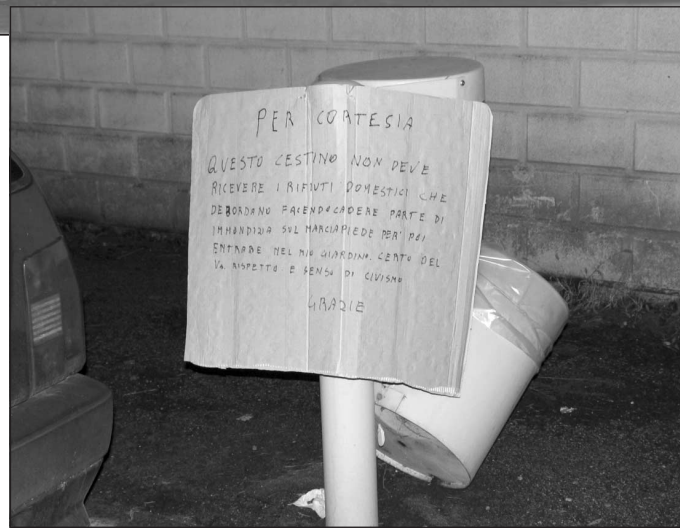 PER CORTESIA
QUESTO CESTINO NON DEVE
RICEVERE I RIFIUTI DOMESTICI CHE
DEBORDANO FACENDO CADERE PARTE DI
IMMONDIZIA SUL MARCIAPIEDE PER POI
ENTRARE NEL MIO GIARDINO. CERTO DEL
Vs. RISPETTO E SENSO DI CIVISMO
GRAZIE